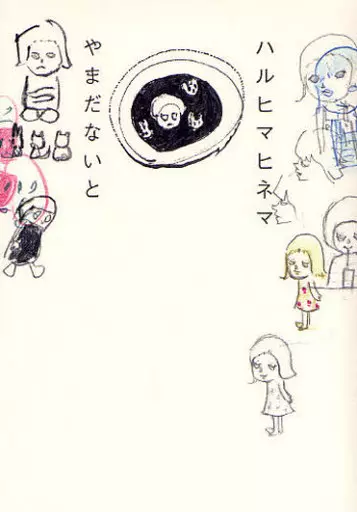 ハルヒマヒネマ
やまだないと